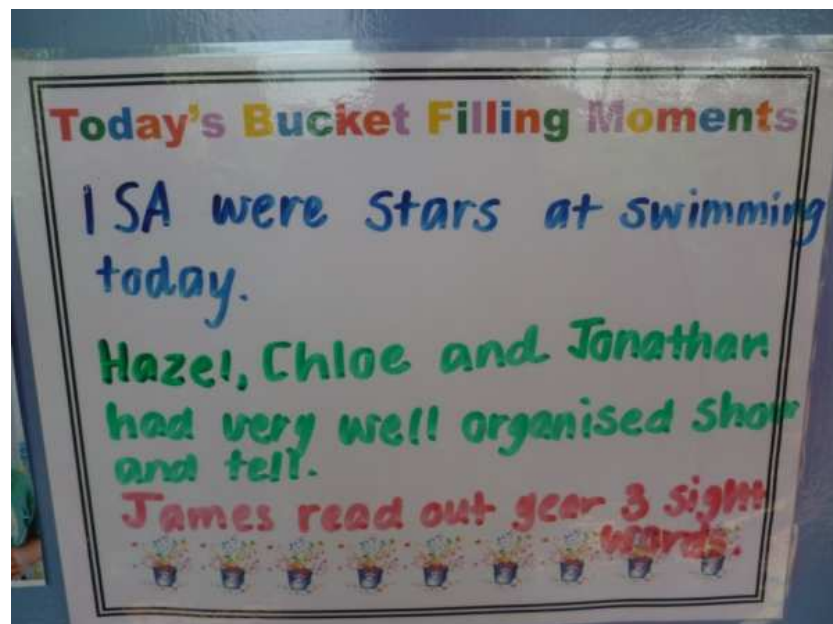 Today's Bucket Filling Moments
1 SA were stars at swimming
today.
Hazel, Chloe and Jonathan
had very well organised show
and tell.
James read out year 3 sight
words.